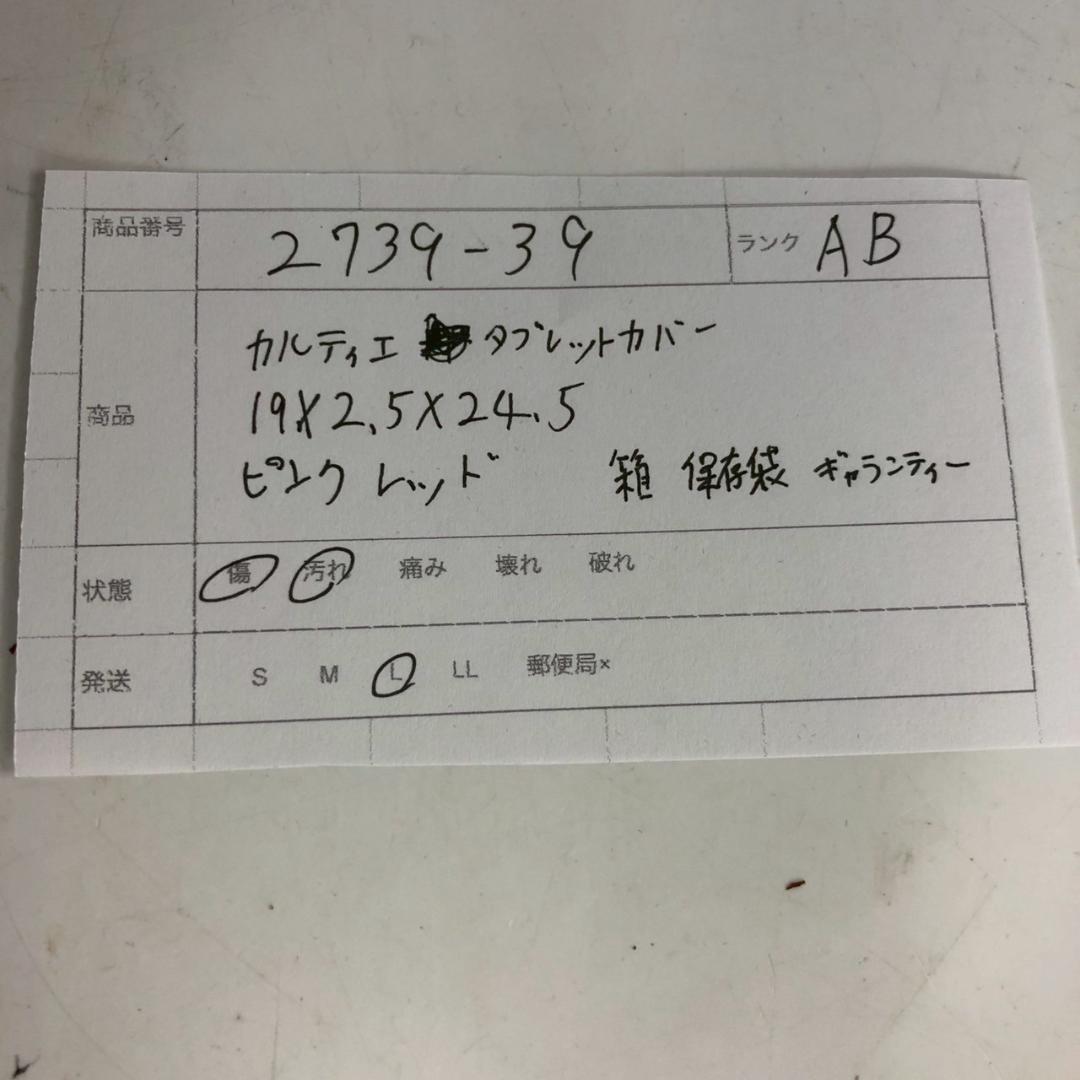 商品番号 2739-39 ランク AB
カルティエ タブレットカバー
商品 19X2.5X24.5
ピンク レッド 箱 保存袋 ギャランティー
状態 傷 汚れ 痛み 壊れ 破れ
発送 S M L LL 郵便局×